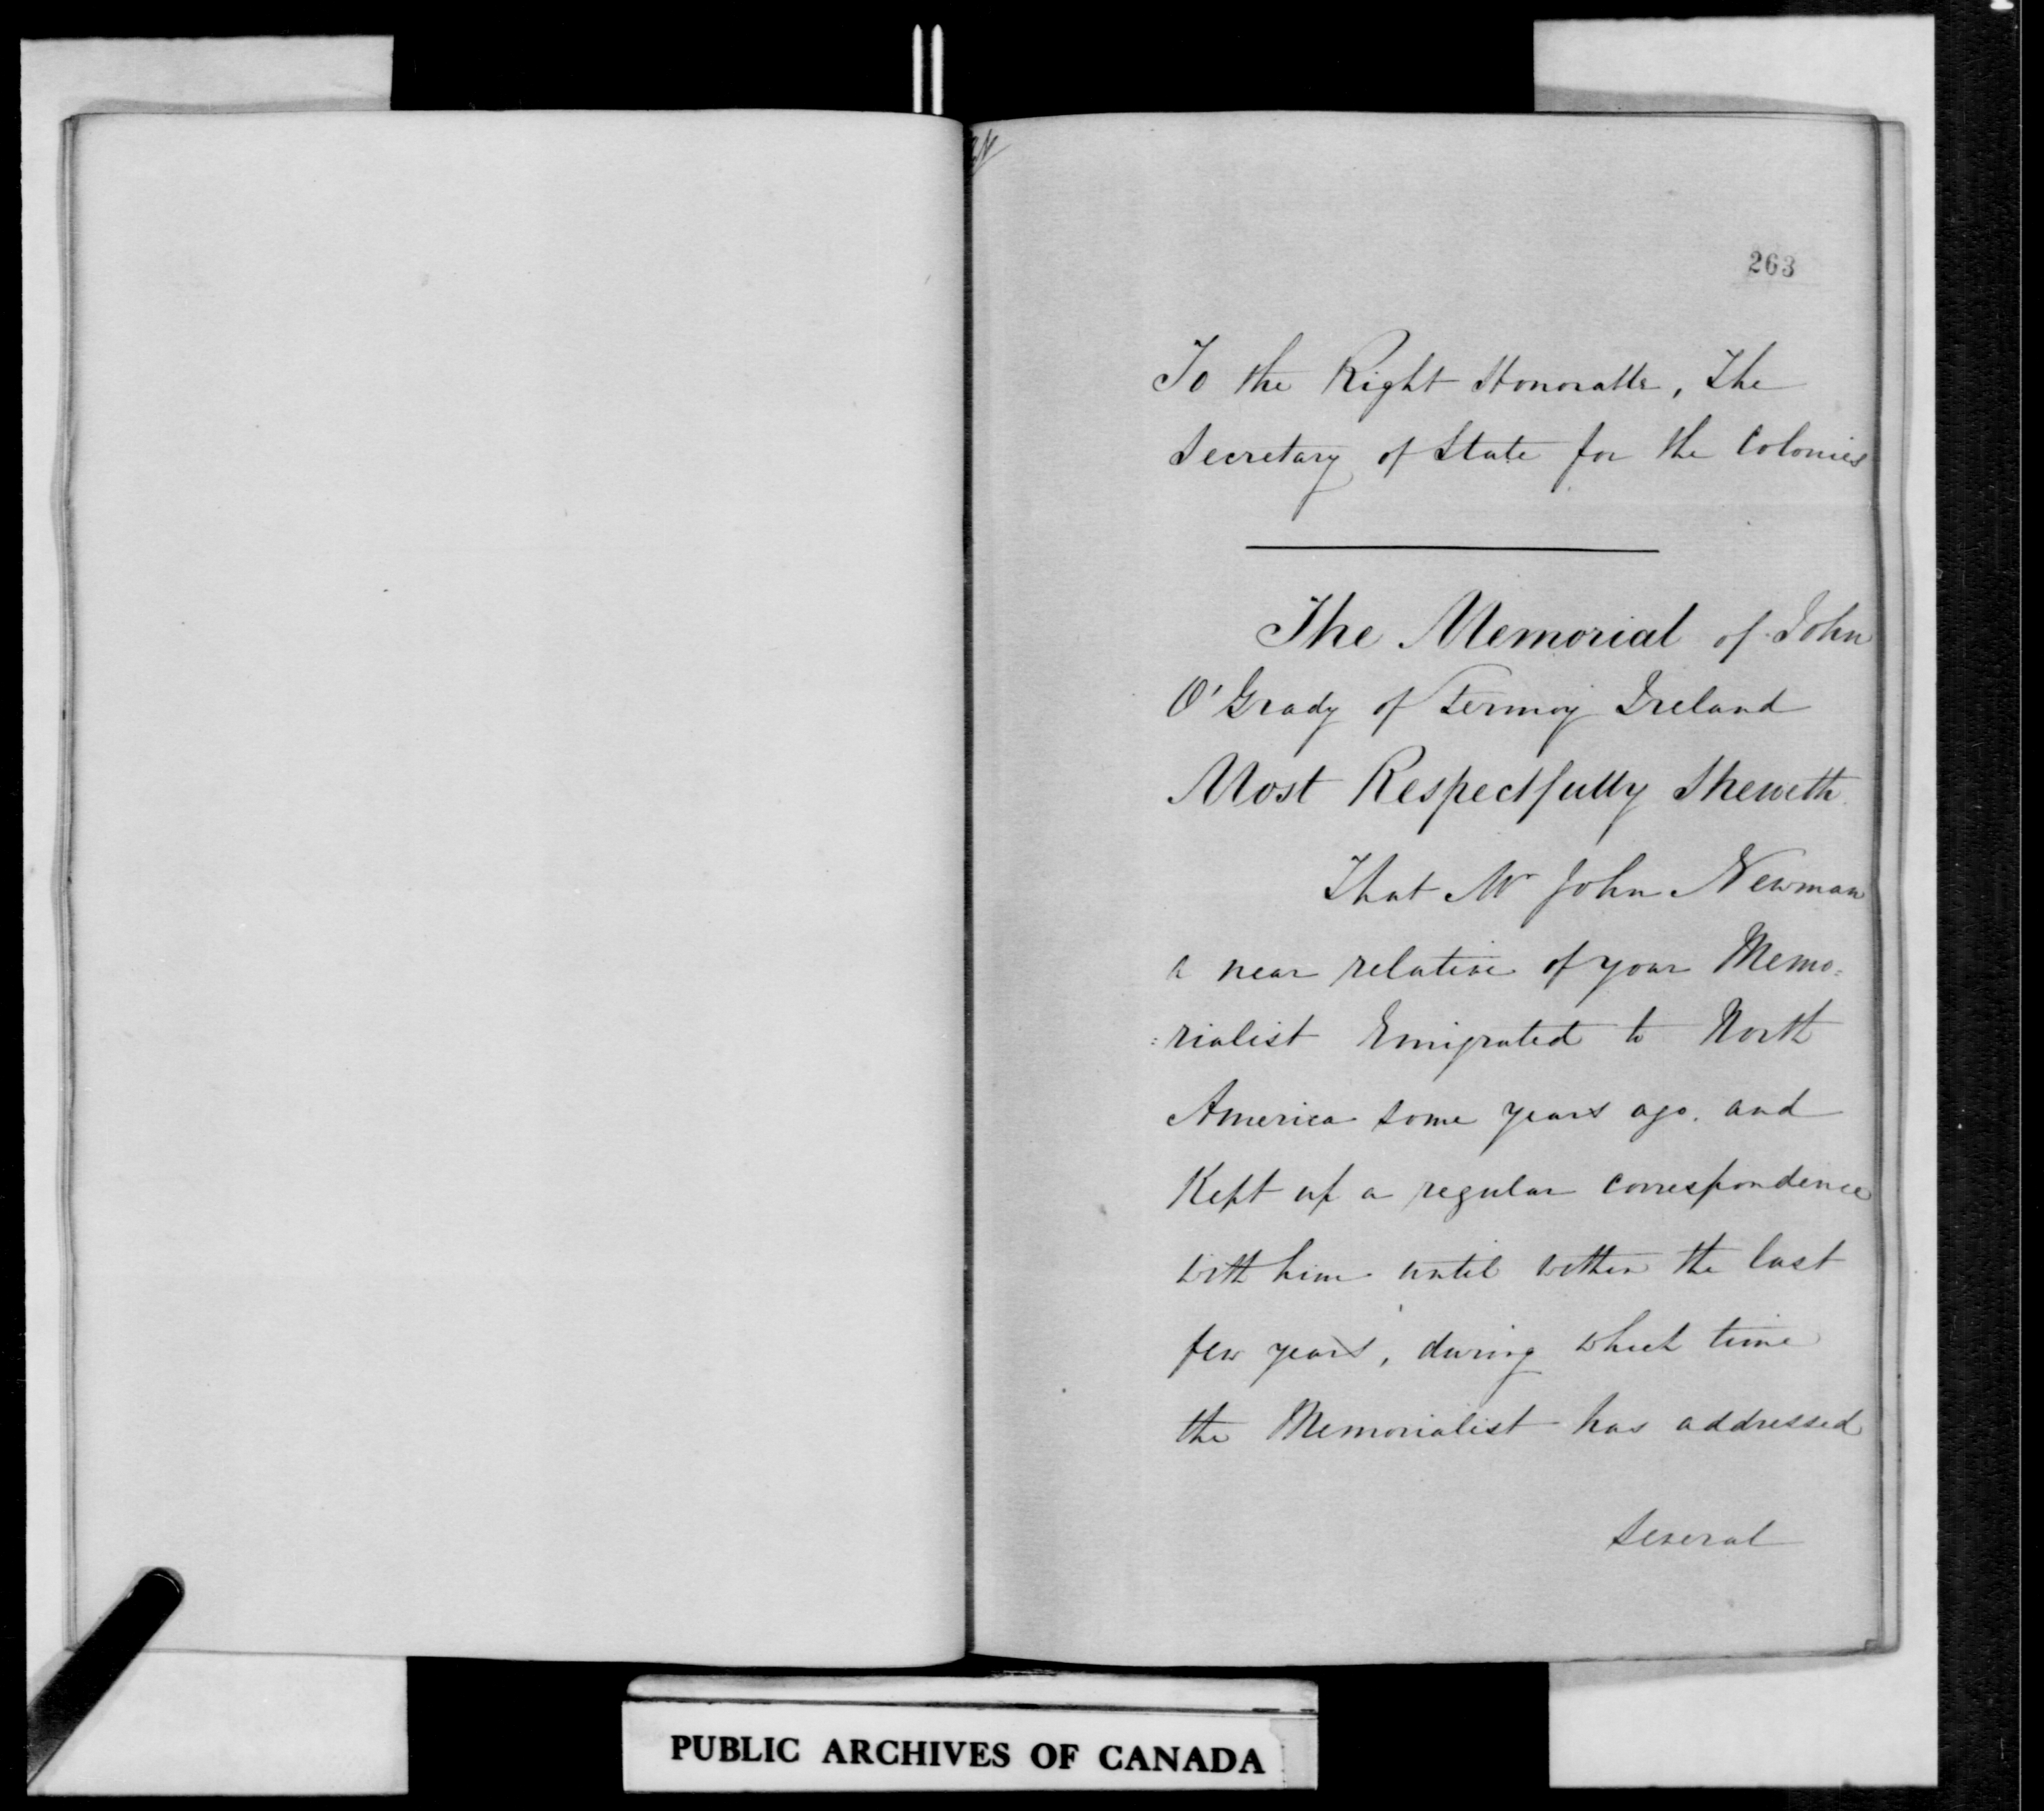 263
To the Right Honorable, The
Secretary of State for the Colonies
The Memorial of John
O'Grady of Fermoy Ireland
Most Respectfully Sheweth
That Mr John Newman
a near relative of your Memo=
=rialist Emigrated to North
America some years ago. and
Kept up a regular correspondence
with him until within the last
few years, during which time
the Memorialist has addressed
several
PUBLIC ARCHIVES OF CANADA